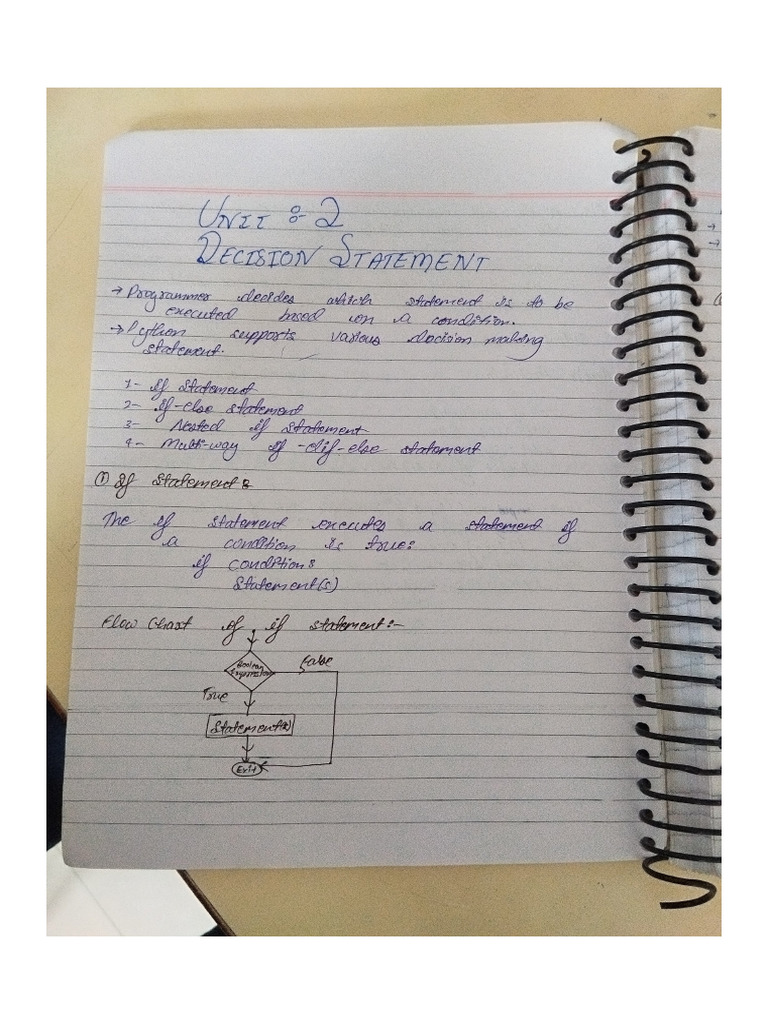 UNIT :- 2
DECISION STATEMENT
→ Programmer decides which statement is to be
executed based on a condition.
→ Python supports various decision making
statement.
1- if statement
2- if-else statement
3- Nested if statement
4- Multi-way if-elif-else statement
① If statement :
The if statement executes a statement if
a condition is true:
if condition:
statement(s)
Flow Chart of if statement:-
Boolean
Expression
False
True
Statement(s)
Exit